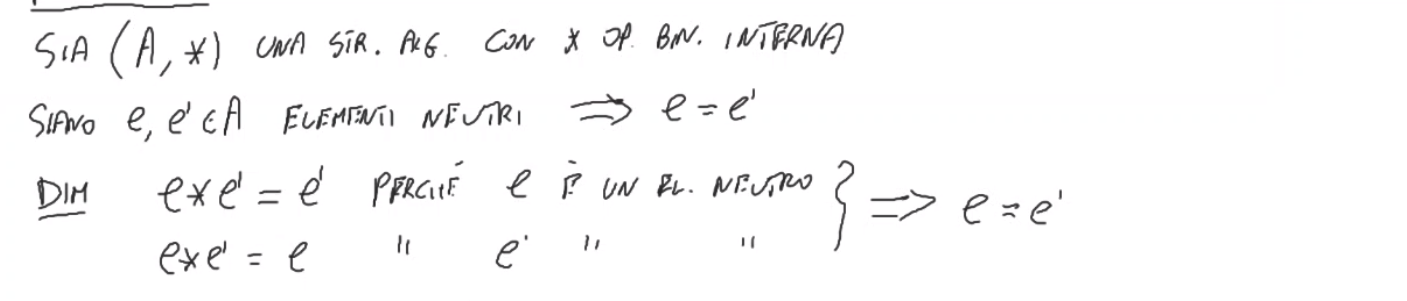 SIA (A, *) UNA STR. ALG. CON * OP. BIN. INTERNA
SIANO e, e' ∈ A ELEMENTI NEUTRI ⟹ e = e'
DIM e * e' = e' PERCHÉ e È UN EL. NEUTRO } ⟹ e = e'
e * e' = e " e' " "